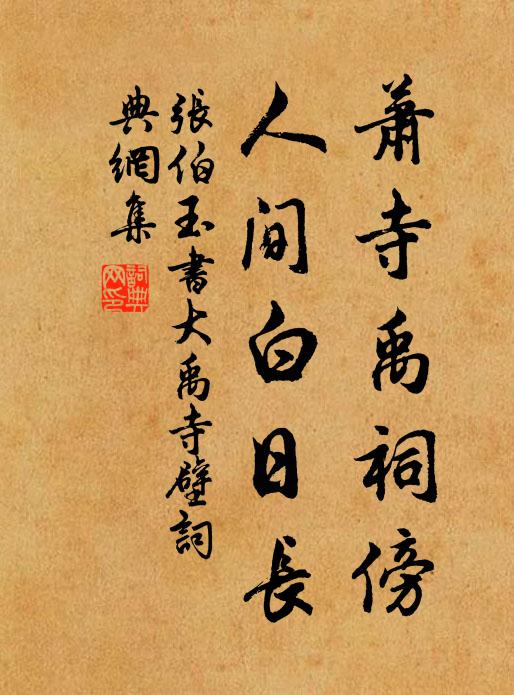 蕭寺禹祠傍
人间白日長
張伯玉書大禹寺壁詞
典網集
詞典网印